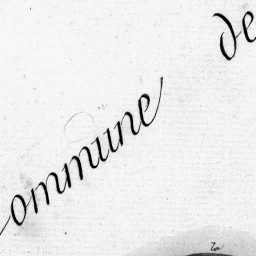 ommune de